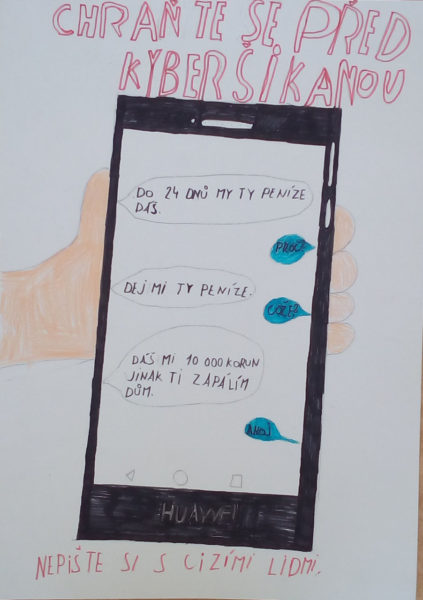 CHRAŇTE SE PŘED
KYBERŠIKANOU
DO 24 DNŮ MY TY PENÍZE
DÁŠ.
PROČ?
DEJ MI TY PENÍZE.
COŽE?
DÁŠ MI 10 000 KORUN
JINAK TI ZAPÁLÍM
DŮM.
HUAWEI
NEPIŠTE SI S CIZÍMI LIDMI.